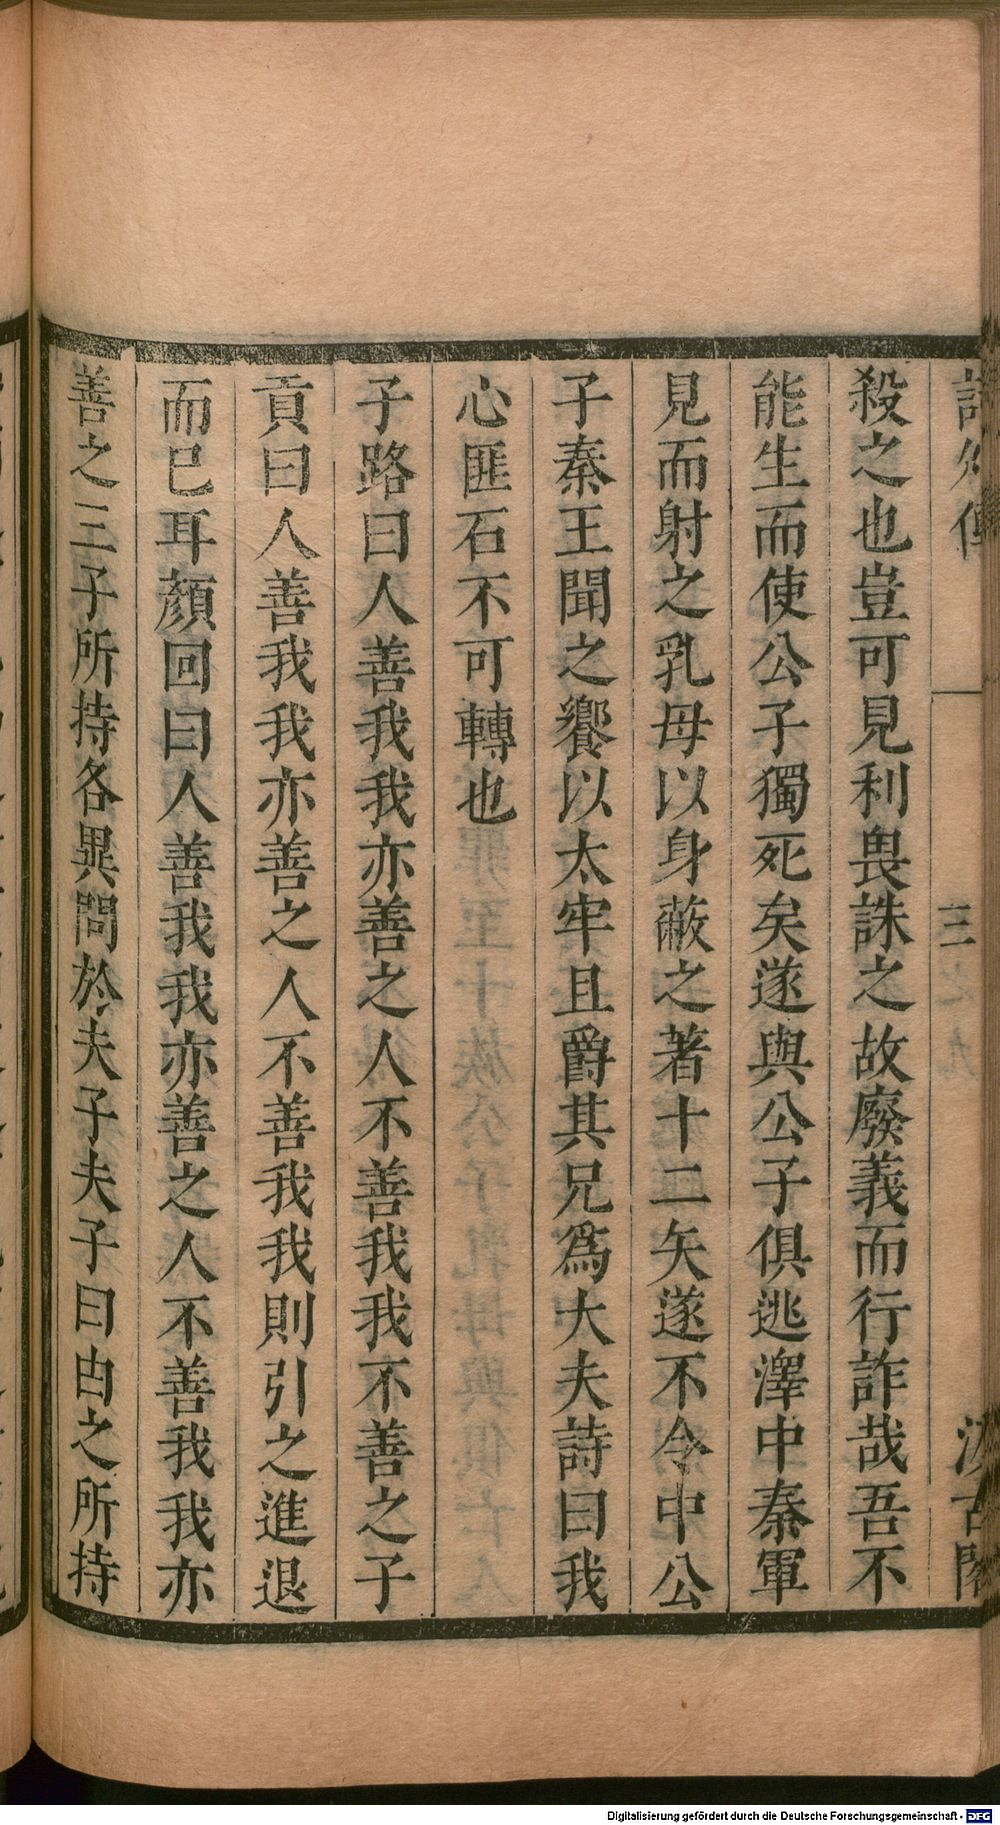 殺之也豈可見利畏誅之故廢義而行詐哉吾不
能生而使公子獨死矣遂與公子俱逃澤中秦軍
見而射之乳母以身蔽之著十二矢遂不令中公
子秦王聞之饗以太牢且爵其兄爲大夫詩曰我
心匪石不可轉也
子路曰人善我我亦善之人不善我我不善之子
貢曰人善我我亦善之人不善我我則引之進退
而巳耳顏回曰人善我我亦善之人不善我我亦
善之三子所持各異問於夫子夫子曰由之所持
Digitalisierung gefördert durch die Deutsche Forschungsgemeinschaft - DFG